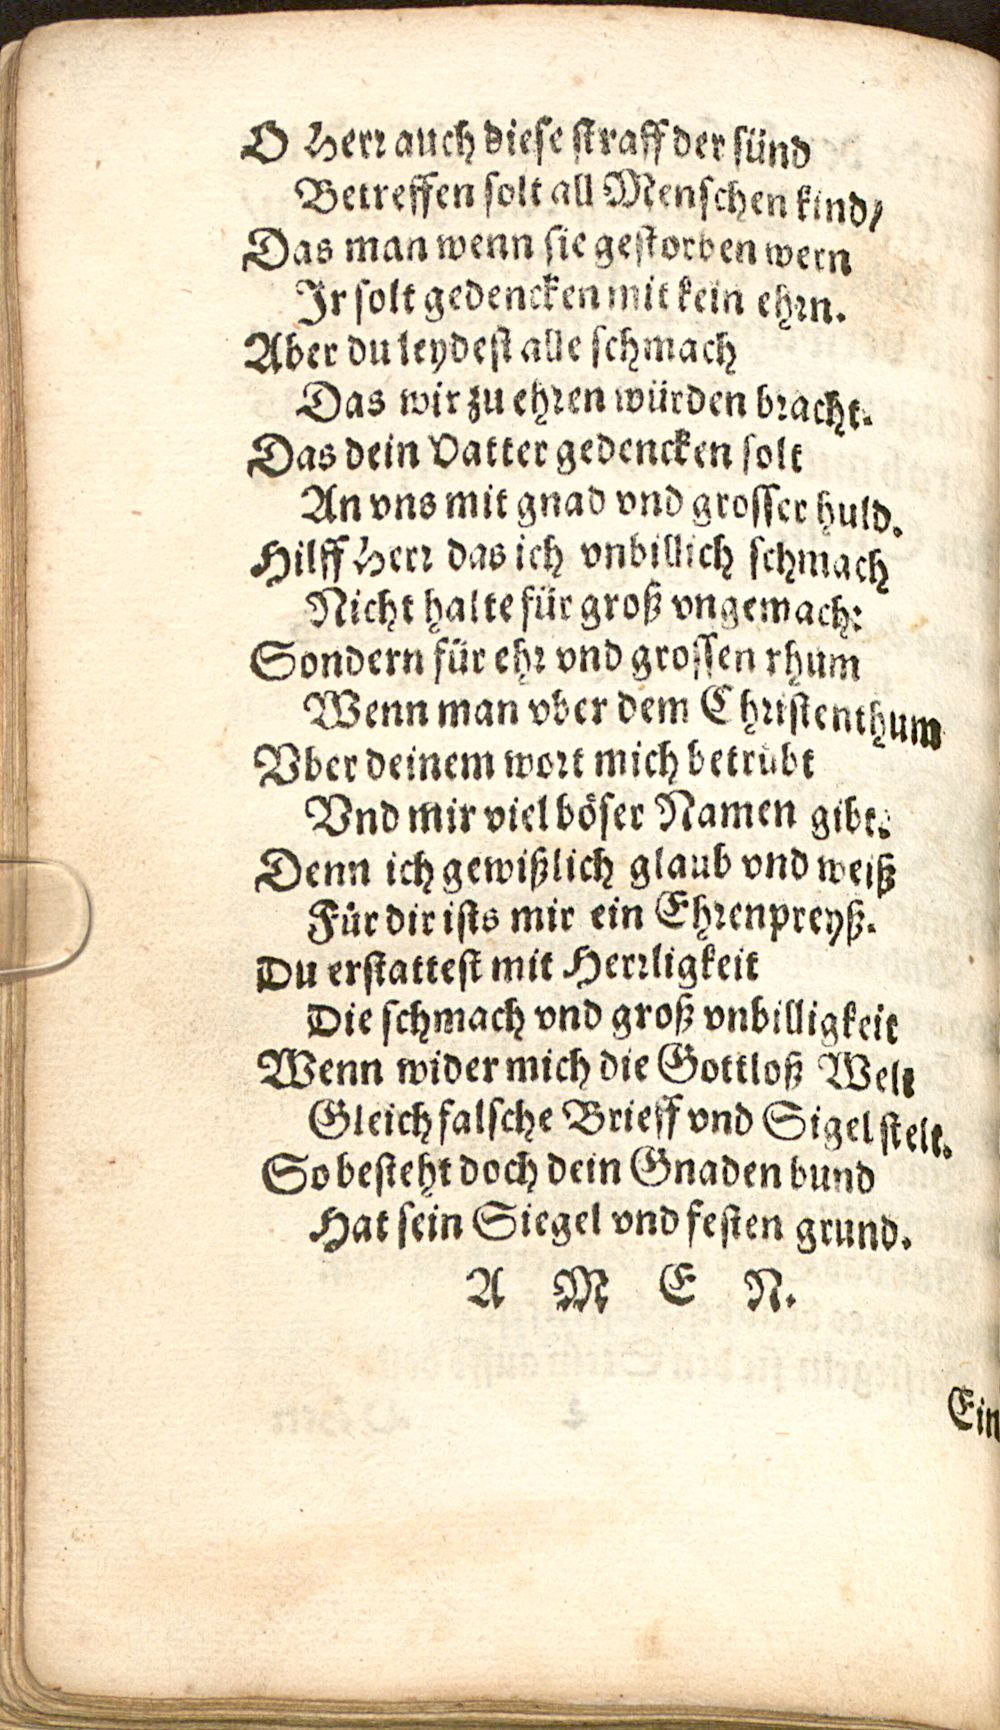 O Herr auch diese straff der sünd
Betreffen solt all Menschen kind/
Das man wenn sie gestorben wern
Ir solt gedencken mit kein ehrn.
Aber du leydest alle schmach
Das wir zu ehren würden bracht.
Das dein Vatter gedencken solt
An vns mit gnad vnd grosser huld.
Hilff Herr das ich vnbillich schmach
Nicht halte für groß vngemach:
Sondern für ehr vnd grossen rhum
Wenn man vber dem Christenthum
Vber deinem wort mich betrübt
Vnd mir viel böser Namen gibt.
Denn ich gewißlich glaub vnd weiß
Für dir ists mir ein Ehrenpreyß.
Du erstattest mit Herrligkeit
Die schmach vnd groß vnbilligkeit
Wenn wider mich die Gottloß Welt
Gleich falsche Brieff vnd Sigel stelt.
So besteht doch dein Gnaden bund
Hat sein Siegel vnd festen grund.
A M E N.
Ein